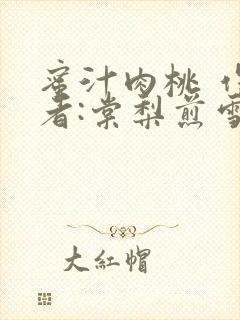 蜜汁肉桃
者:棠梨煎雪
大红帽